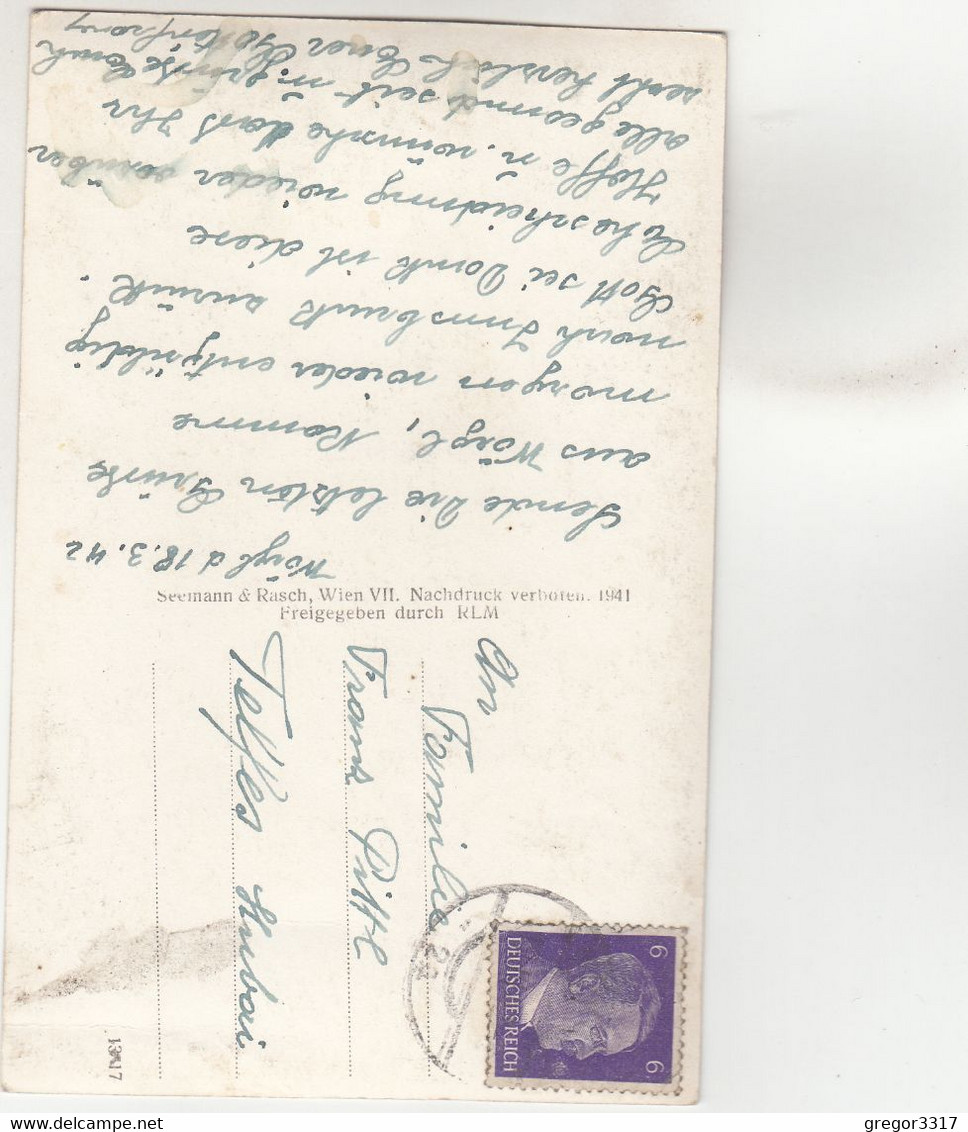 Wörgl d 18.3.42
Sende die letzten Grüße
aus Wörgl, komme
morgen wieder entgültig
nach Innsbruck zurück.
Gott sei Dank ist diese
wieder vorüber
Hoffe u. wünsche dass Ihr
alle gesund seit u. grüsse Euch
recht herzlich Euer
Seemann & Rasch, Wien VII. Nachdruck verboten. 1941
Freigegeben durch RLM
An
Familie
Franz Pittl
Telfes Stubai
13417
6 6
DEUTSCHES REICH
gregor3317